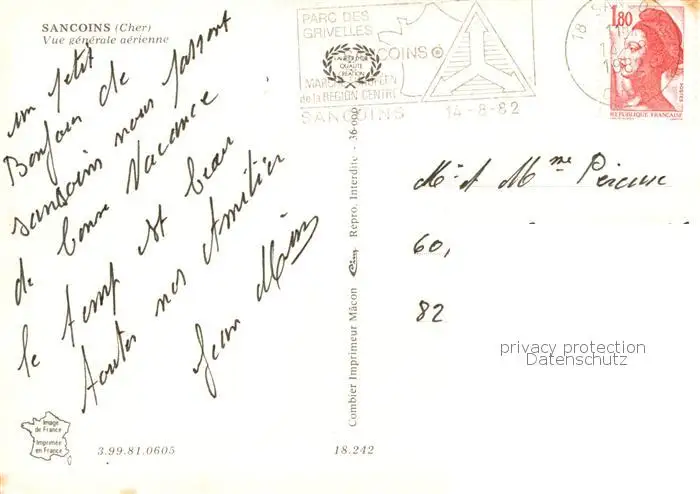 SANCOINS (Cher)
Vue générale aérienne
un petit
Bonjour de
sancoins nous passont
de bonne Vacance
le temp est beau
toutes nos Amitier
Jean
PARC DES
GRIVELLES
COINS
MARCHÉ
de la RÉGION CENTRE
SANCOINS 14-8-82
18 SANCO
1,80
POSTES
REPUBLIQUE FRANÇAISE
QUALITÉ
CRÉATION
Combier Imprimeur Mâcon Cim Repro. Interdite - 36-000
Mr et Mme
60,
82
privacy protection
Datenschutz
Image
de France
Imprimée
en France
3.99.81.0605
18.242